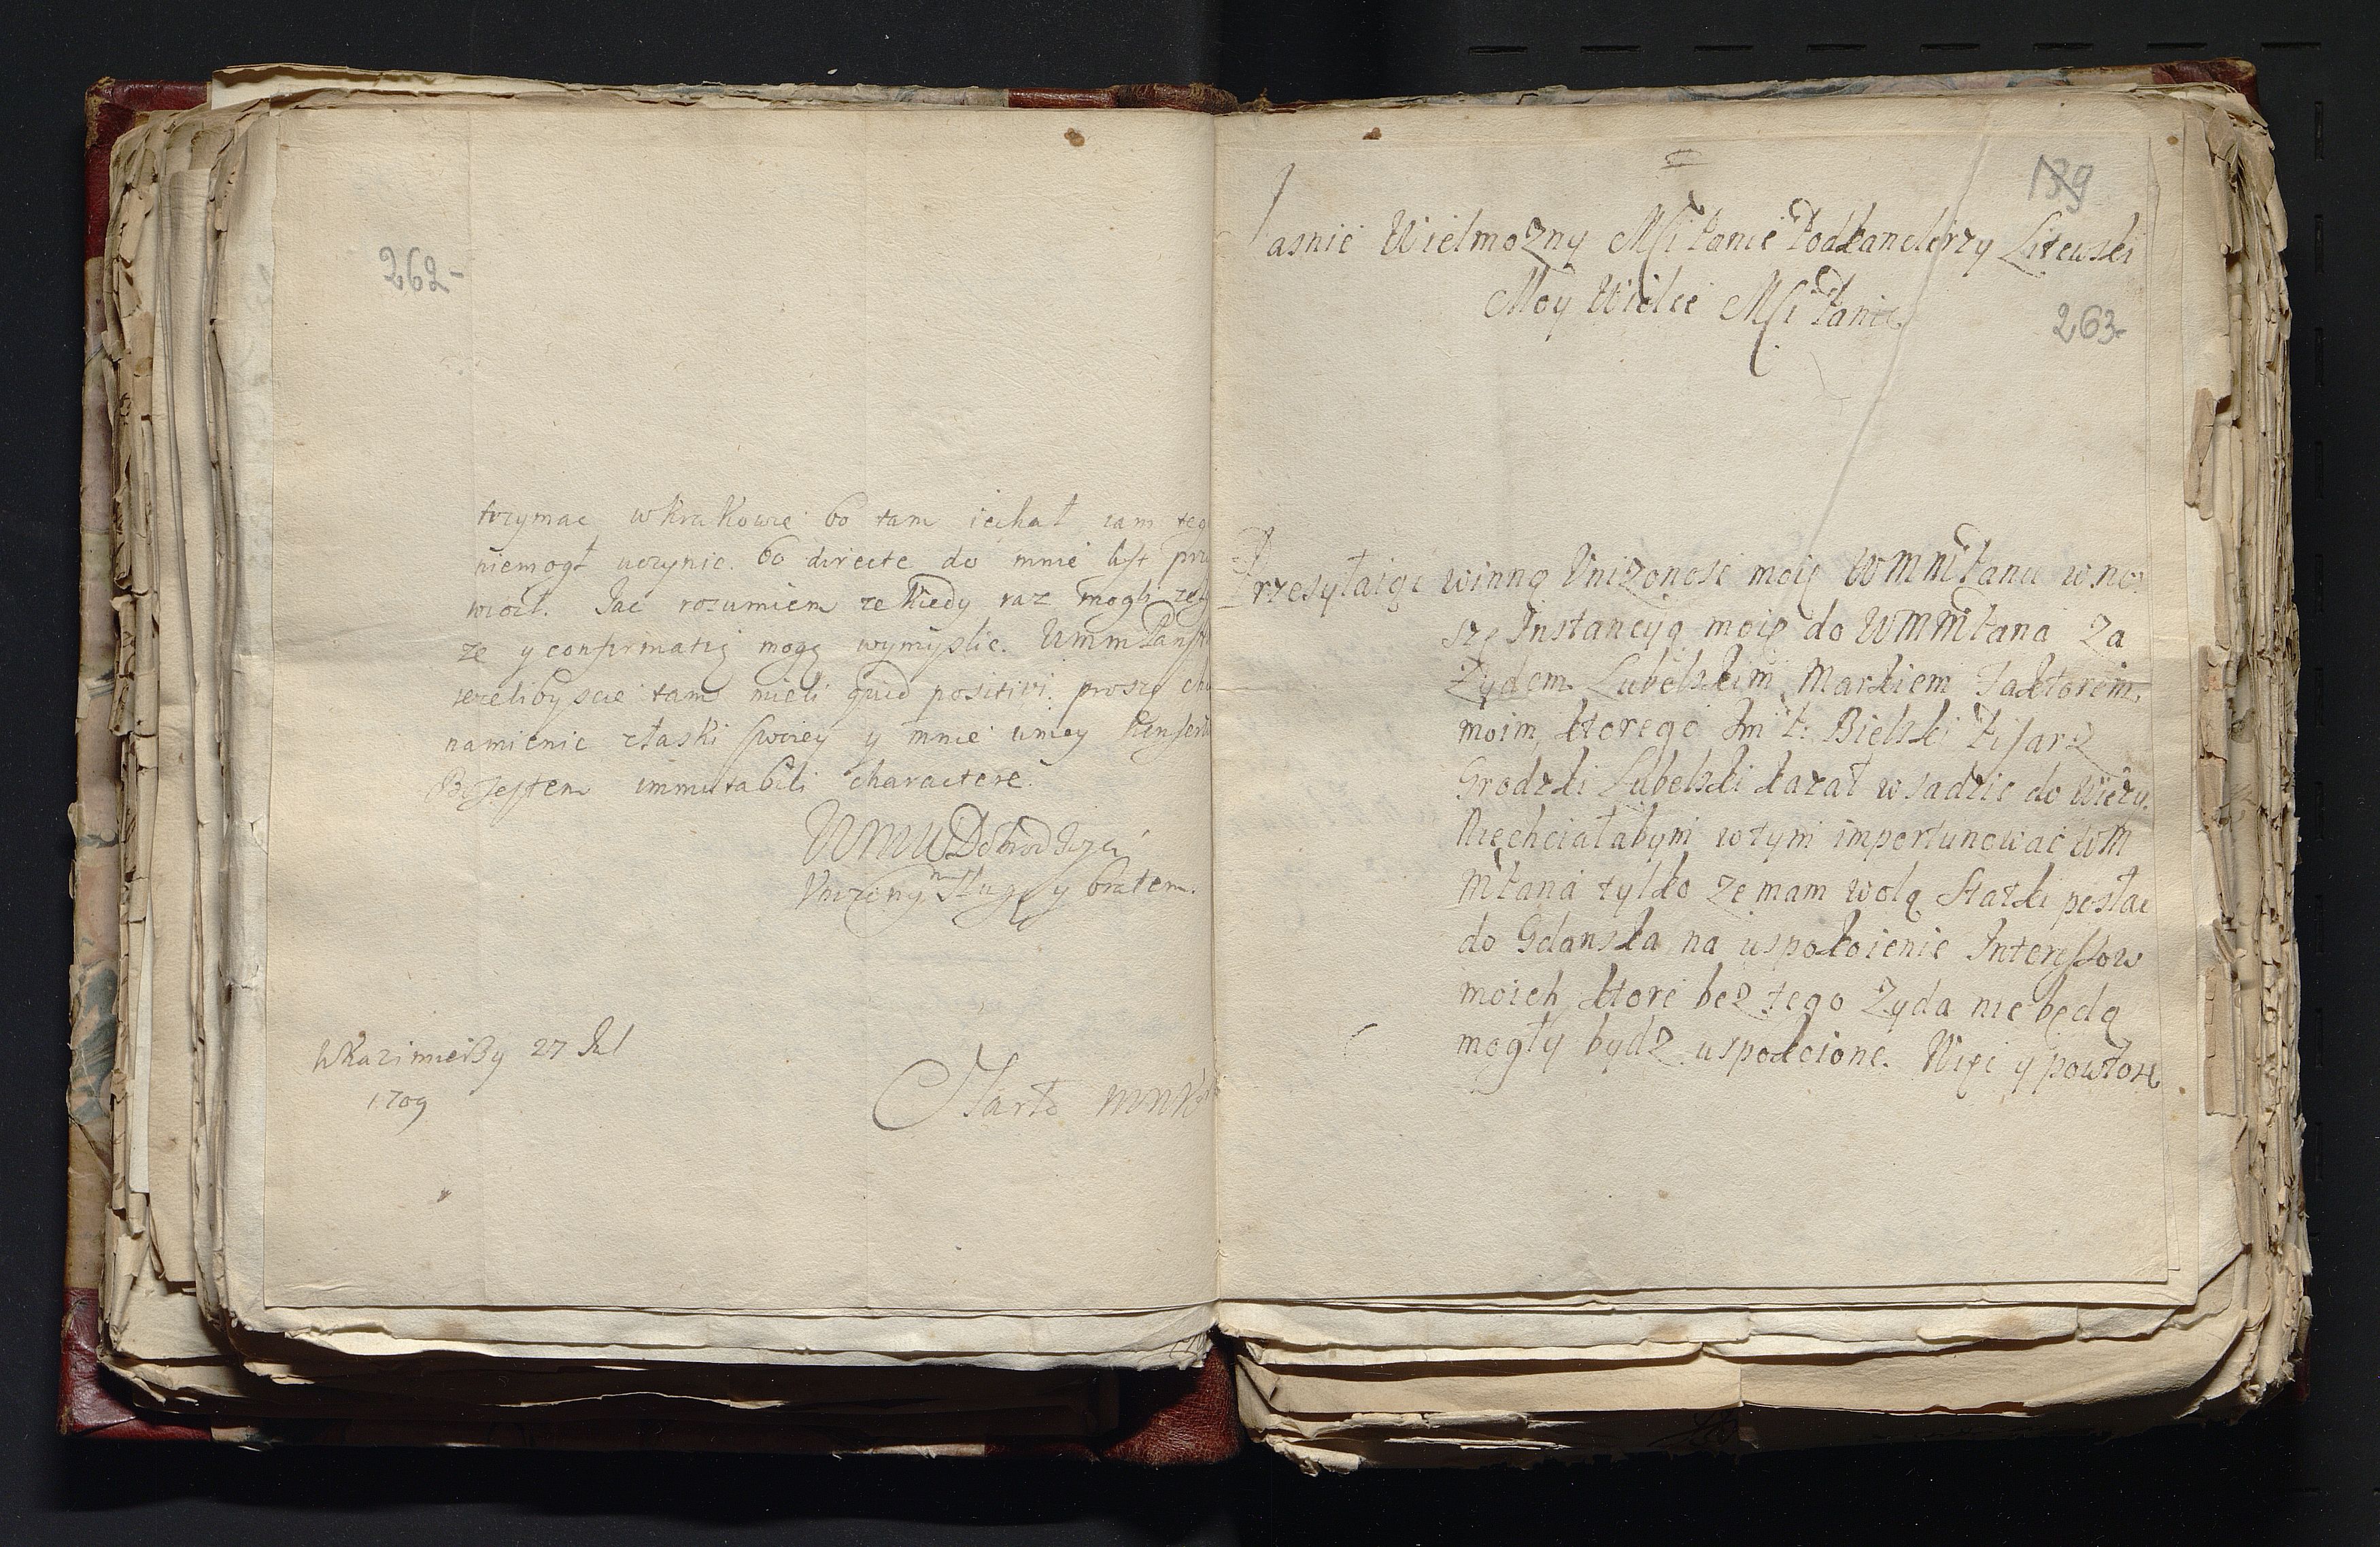 262-
trzymac w Krakowie bo tam iechał sam teg
niemogł uczynic. bo directe do mnie list prz
wiozł. Jac rozumiem ze kiedy raz mogli
ze y confirmatią mogą wymyslic. UmmPanst
iezelibyscie tam mieli quid positivi. prosze
namienic złaski swoiey y mnie umey
Bo jestem immutabili charactere.
WMM Dobrodzieia
Vnizonym sługą y bratem.
WKazimierzy 27 Jul
1709
Tarło
=
139
Jasnie Wielmozny Msci Panie Podkanclerzy Litewski
Moy Wielce Msci Panie
263-
Przesyłaiąc winną Vnizonosc moię WMMPanu wno
szę Instancyą moię do WMMPana za
Zydem Lubelskim Markiem Faktorem
moim, ktorego Jm P: Bielski Pisarz
Grodzki Lubelski kazał wsadzic do Wiezy.
Niechciałabym wtym importunowac WM
MPana tylko ze mam wolą Statki posłac
do Gdanska na uspokoienie Interessow
moich ktore bez tego Zyda nie będą
mogły bydz uspokoione. Więc y powtore